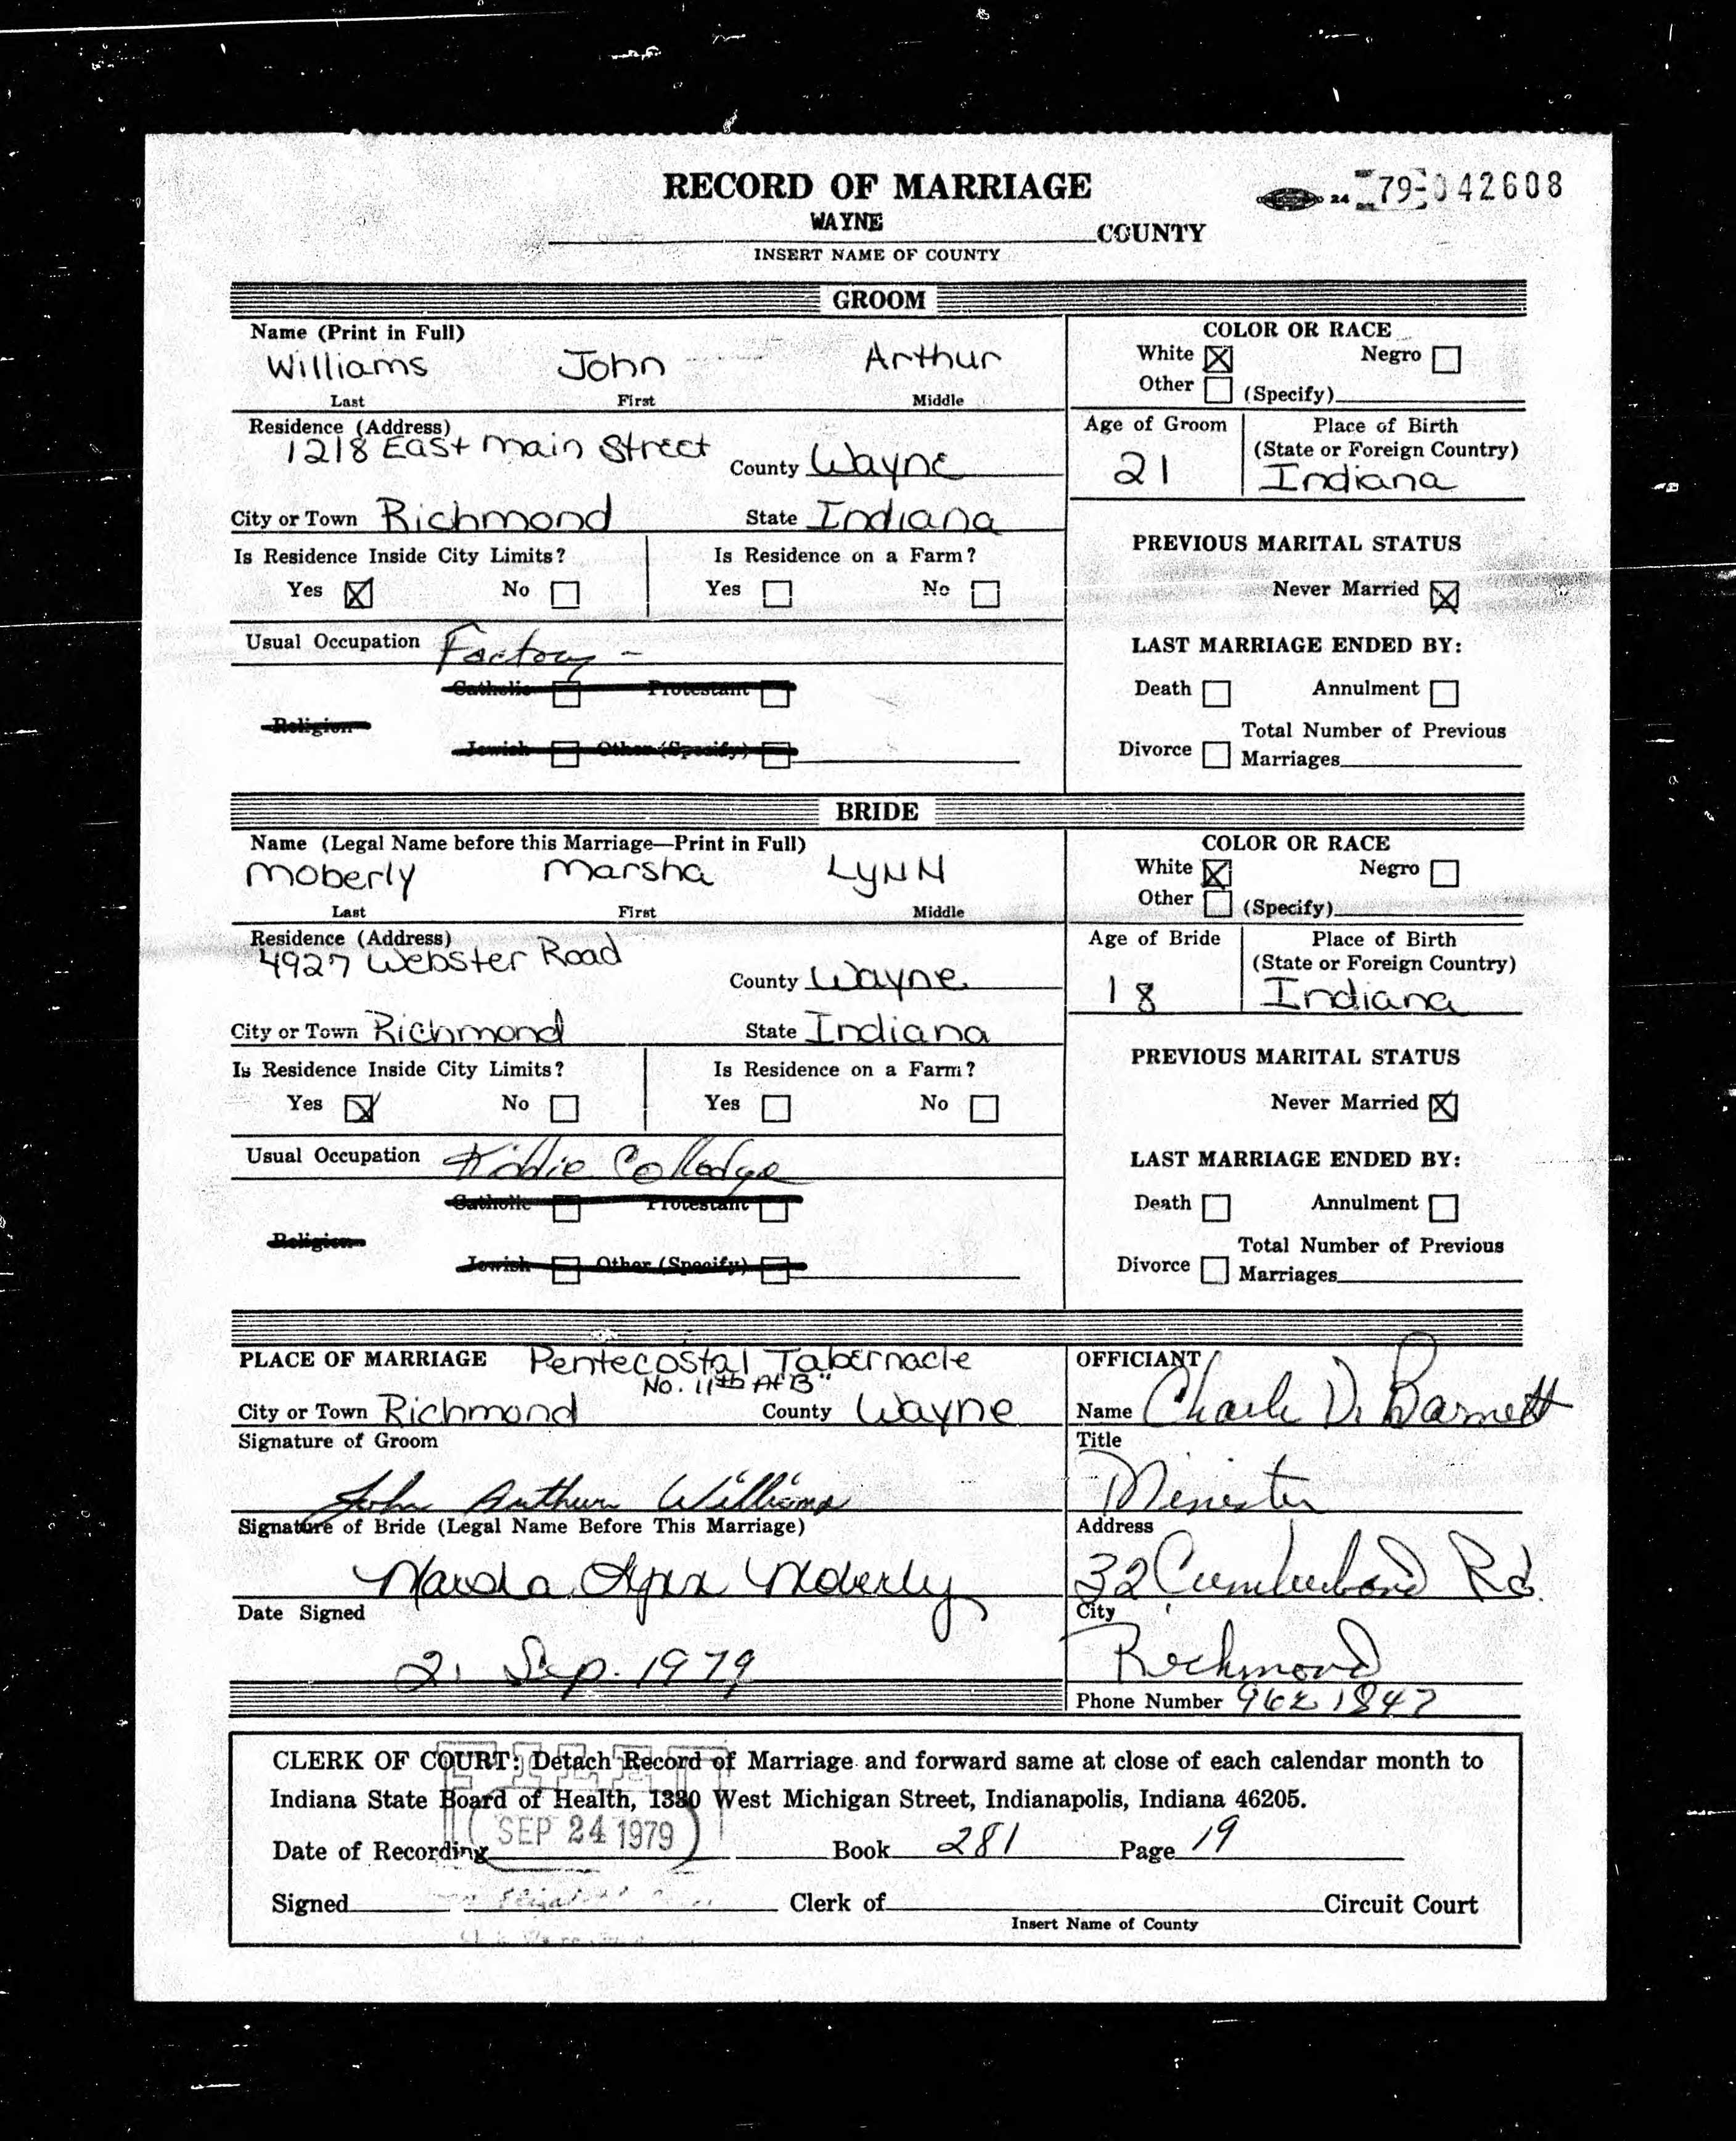 RECORD OF MARRIAGE
24 79-042608
WAYNE COUNTY
INSERT NAME OF COUNTY
GROOM
Name (Print in Full)
Williams John Arthur
Last First Middle
COLOR OR RACE
White ☒ Negro ☐
Other ☐ (Specify)
Residence (Address)
1218 East Main Street County Wayne
Age of Groom
21
Place of Birth
(State or Foreign Country)
Indiana
City or Town Richmond State Indiana
Is Residence Inside City Limits? Is Residence on a Farm?
Yes ☒ No ☐ Yes ☐ No ☐
PREVIOUS MARITAL STATUS
Never Married ☒
Usual Occupation Factory -
LAST MARRIAGE ENDED BY:
Catholic ☐ Protestant ☐
Religion
Jewish ☐ Other (Specify) ☐
Death ☐ Annulment ☐
Total Number of Previous
Divorce ☐ Marriages
BRIDE
Name (Legal Name before this Marriage—Print in Full)
Moberly Marsha Lynn
Last First Middle
COLOR OR RACE
White ☒ Negro ☐
Other ☐ (Specify)
Residence (Address)
4927 Webster Road County Wayne
Age of Bride
18
Place of Birth
(State or Foreign Country)
Indiana
City or Town Richmond State Indiana
Is Residence Inside City Limits? Is Residence on a Farm?
Yes ☒ No ☐ Yes ☐ No ☐
PREVIOUS MARITAL STATUS
Never Married ☒
Usual Occupation Kiddie Colledge
LAST MARRIAGE ENDED BY:
Catholic ☐ Protestant ☐
Religion
Jewish ☐ Other (Specify) ☐
Death ☐ Annulment ☐
Total Number of Previous
Divorce ☐ Marriages
PLACE OF MARRIAGE Pentecostal Tabernacle
No. 11th At B"
City or Town Richmond County Wayne
Signature of Groom
John Arthur Williams
Signature of Bride (Legal Name Before This Marriage)
Marsha Lynn Moberly
Date Signed
21 Sep. 1979
OFFICIANT
Name Charle D. Barnett
Title
Minister
Address
32 Cumberland Rd.
City
Richmond
Phone Number 962 1847
CLERK OF COURT: Detach Record of Marriage and forward same at close of each calendar month to
Indiana State Board of Health, 1330 West Michigan Street, Indianapolis, Indiana 46205.
FILED
Date of Recording SEP 24 1979 Book 281 Page 19
Signed Clerk of Circuit Court
Insert Name of County